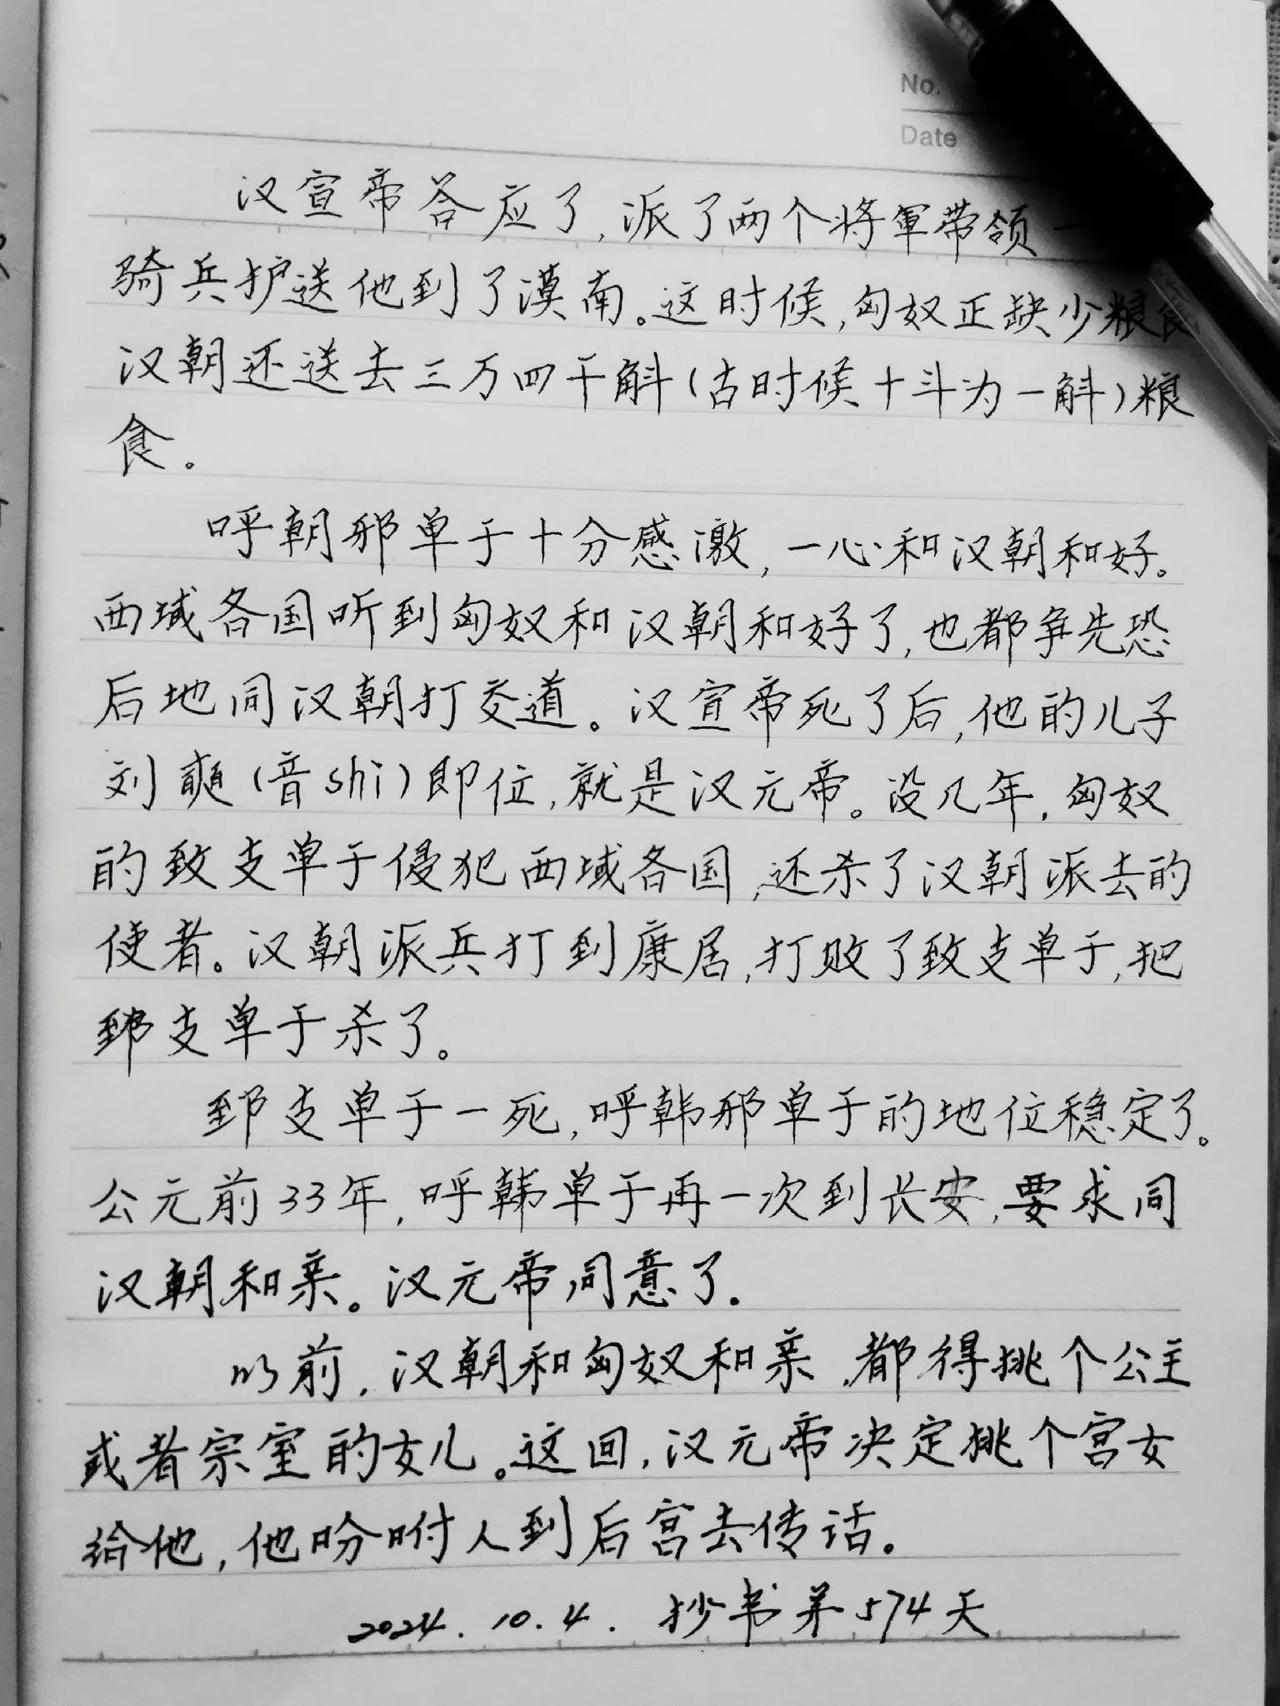 No.
Date
汉宣帝答应了,派了两个将軍带领一
骑兵护送他到了漠南。这时候,匈奴正缺少粮食
汉朝还送去三万四千斛(古时候十斗为一斛)粮
食。
呼朝邪单于十分感激,一心和汉朝和好。
西域各国听到匈奴和汉朝和好了,也都争先恐
后地同汉朝打交道。汉宣帝死了后,他的儿子
刘奭(音shi)即位,就是汉元帝。没几年,匈奴
的致支单于侵犯西域各国,还杀了汉朝派去的
使者。汉朝派兵打到康居,打败了致支单于,把
郅支单于杀了。
郅支单于一死,呼韩邪单于的地位稳定了。
公元前33年,呼韩单于再一次到长安,要求同
汉朝和亲。汉元帝同意了.
以前,汉朝和匈奴和亲,都得挑个公主
或者宗室的女儿。这回,汉元帝决定挑个宫女
给他,他吩咐人到后宫去传话。
2024.10.4. 抄书第574天